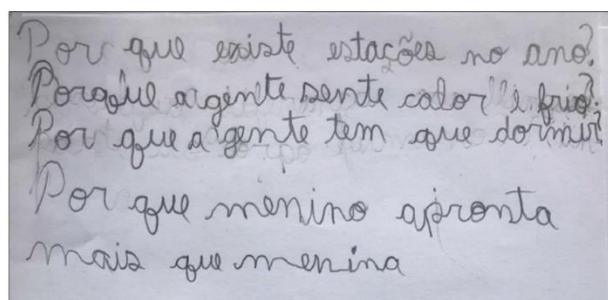 Por que existe estações no ano?
Porque agente sente calor e frio?
Por que agente tem que dormir?
Por que menino apronta
mais que menina